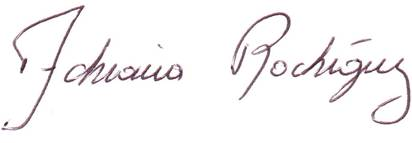 Adriana Rodríguez